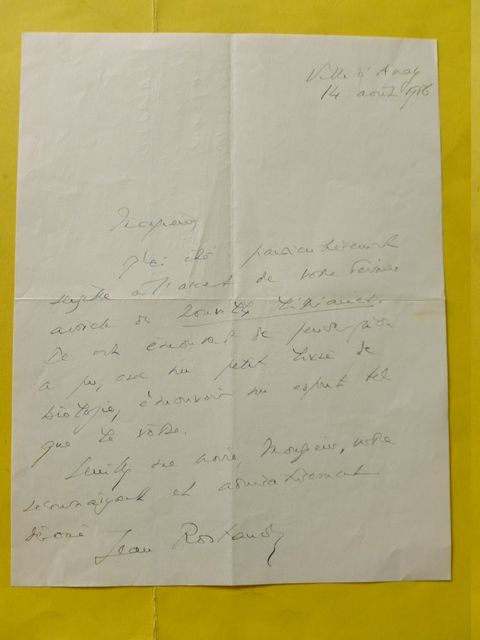 Ville d'Avray
14 août
Monsieur
J'ai été particulièrement
sensible à l'accent de votre dernier
article de
Je suis de penser que j'aie
a pu, avec un petit livre de
biologie, émouvoir un esprit tel
que le vôtre.
Veuillez me croire, Monsieur, votre
reconnaissant et admirativement
dévoué Jean Rostand